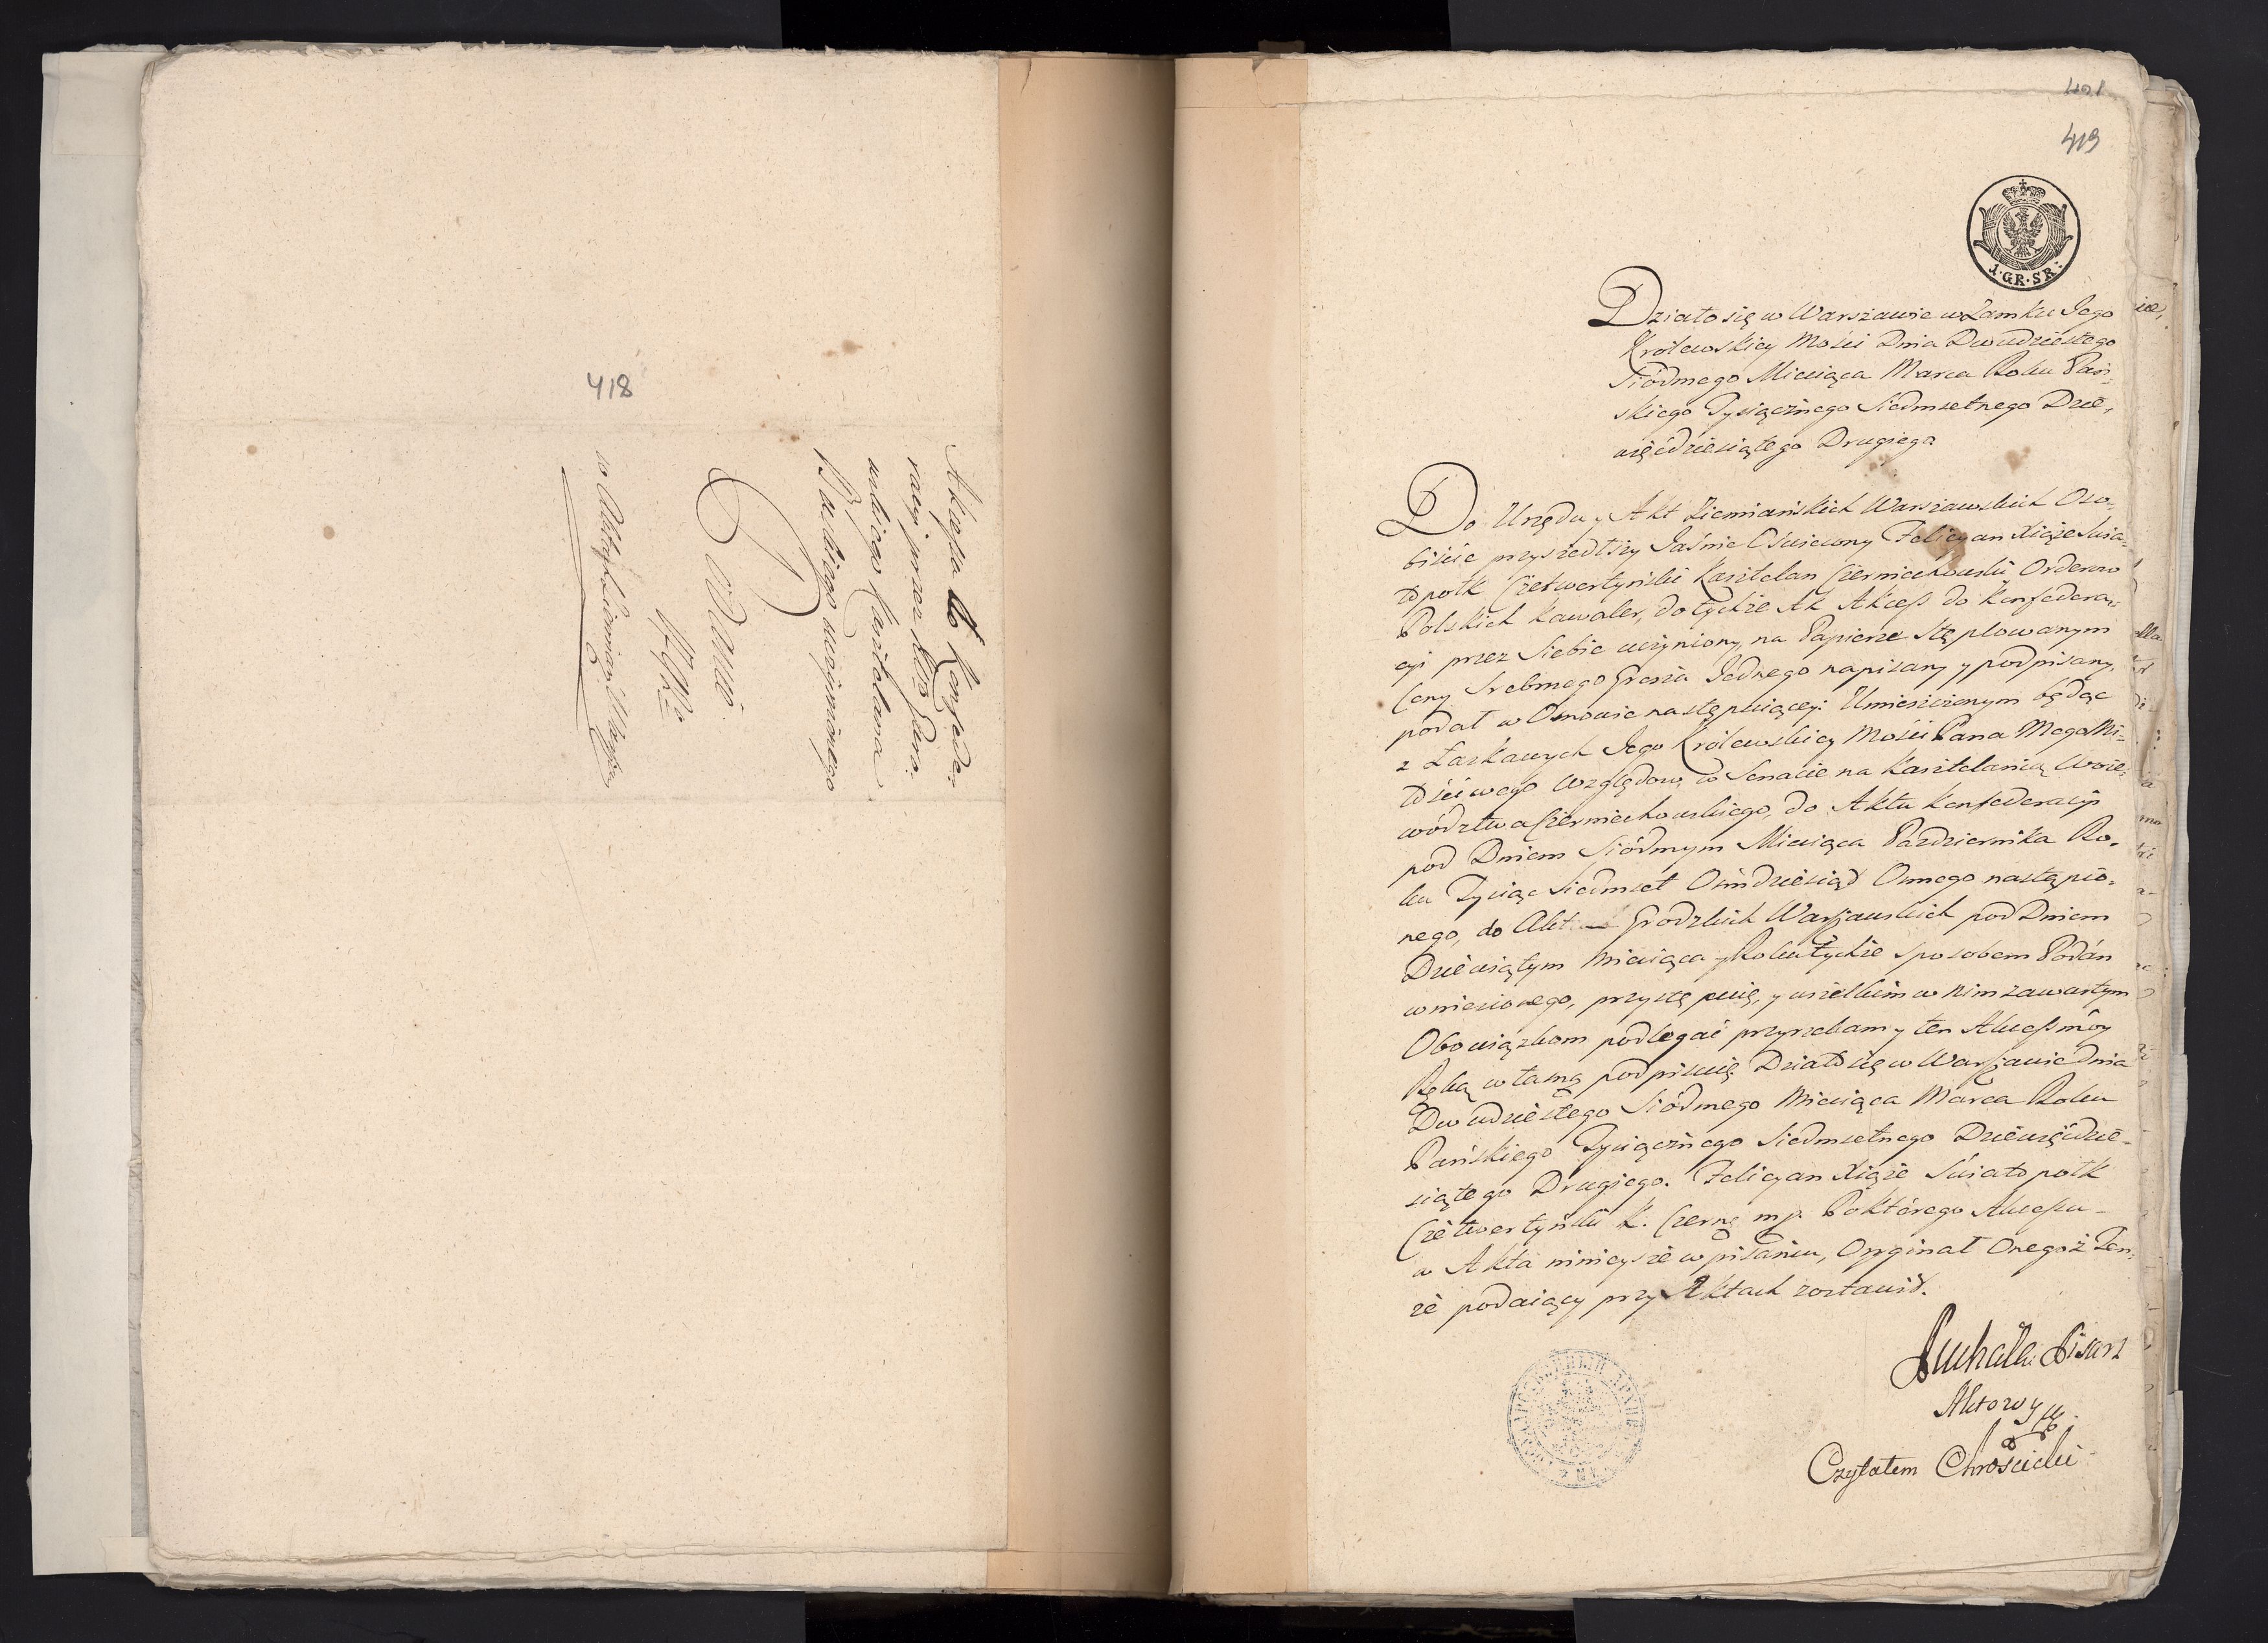 418
Akcessu do Konfede-
racyi przez
Kasztelana
uczynionego
Podanie
w Aktach Ziemiań: Warsz:
401
419
1·GR·SR:
Działo się w Warszawie w Zamku Jego
Królewskiey Mości Dnia Dwudziestego
Siódmego Miesiąca Marca Roku Pań-
skiego Tysiącznego Siedmsetnego Dzie-
więćdziesiątego Drugiego
Do Urzędu y Akt Ziemiańskich Warszawskich Oso-
biście przyszedłszy Jaśnie Oświecony Felicyan Xiąże Świa-
topołk Czetwertyński Kasztelan Czerniechowski Orderow
Polskich Kawaler, do tychże Ak Akceß do Konfedera-
cyi przez Siebie uczyniony, na Papierze Stęplowanym
Ceny Srebrnego Grosza Jednego napisany y podpisany,
podał w Osnowie następuiącey: Umieszczonym będąc
z Łaskawych Jego Królewskiey Mości Pana Mego Mi-
łościwego Względow, w Senacie na Kasztelanią Woie-
wództwa Czerniechowskiego, do Aktu Konfederacyi
pod Dniem Siódmym Miesiąca Października Ro-
ku Tysiąc Siedmset Ośmdziesiąd Osmego nastąpio-
nego, do Akt Grodzkich Warszawskich pod Dniem
Dziewiątym Miesiąca y Roku tychże sposobem Podań
wniesionego, przystępuię, y wszelkim w nim zawartym
Obowiązkom podlegać przyrzekam y ten Akceß móy
Ręką własną podpisuię Działo się w Warszawie Dnia
Dwudziestego Siódmego Miesiąca Marca Roku
Pańskiego Tysiącznego Siedmsetnego Dziewięćdzie-
siątego Drugiego. Felicyan Xiąże Światopołk
Czetwertyński K. Czerń mp. Po którego Akcessu
w Akta ninieysze wpisaniu, Oryginał Onegoż Ten-
że podaiący przy Aktach zostawił.
Suchalski Pisarz
Aktowy
Czytałem Chrościcki